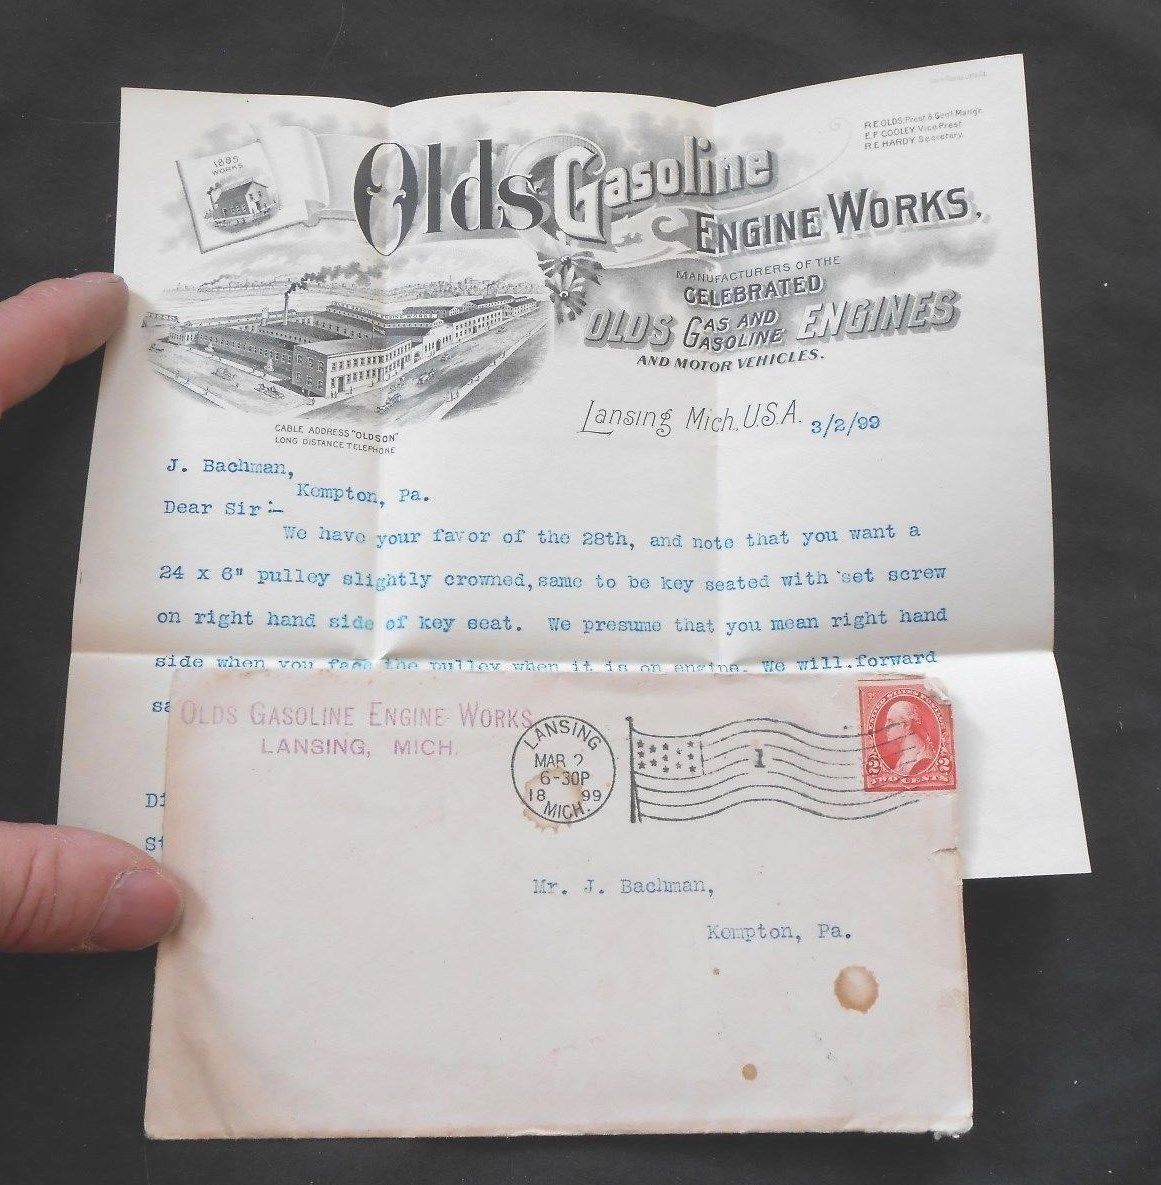 R.E.OLDS, Prest & Genl Mangr.
E.F COOLEY Vice Prest
R.E HARDY Secretary.
1885
WORKS
Olds Gasoline
ENGINE WORKS,
MANUFACTURERS OF THE
CELEBRATED
OLDS GAS AND GASOLINE ENGINES
AND MOTOR VEHICLES.
CABLE ADDRESS "OLDSON"
LONG DISTANCE TELEPHONE
Lansing Mich, U.S.A. 3/2/99
J. Bachman,
Kempton, Pa.
Dear Sir:-
We have your favor of the 28th, and note that you want a
24 x 6" pulley slightly crowned, same to be key seated with set screw
on right hand side of key seat. We presume that you mean right hand
side when you face the pulley when it is on engine. We will forward
sa
Di
St
OLDS GASOLINE ENGINE WORKS
LANSING, MICH.
LANSING
MAR 2
6-30P
18 99
MICH.
1
2 2
TWO CENTS
Mr. J. Bachman,
Kempton, Pa.